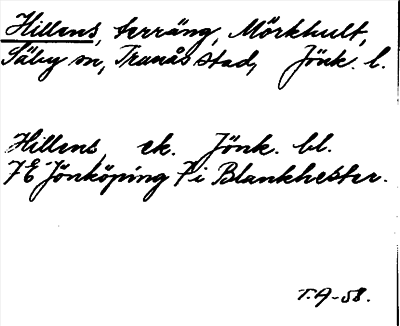 Hillens, terräng, Mörkhult,
Säby sn, Tranås stad, Jönk. l.
Hillens, ek. Jönk. bl.
7 E Jönköping 7 i Blankhester.
T.A-58.